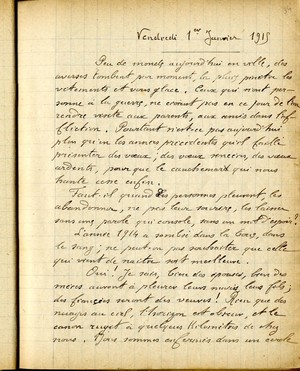 Vendredi 1er Janvier 1915
Peu de monde aujourd'hui en ville, des
averses tombent par moment, la pluie pénètre les
vêtements et vous glace. Ceux qui n'ont per-
sonne à la guerre, ne croient pas en ce jour de l'an
rendre visite aux parents, aux amis dans l'af-
fliction. Pourtant n'est-ce pas aujourd'hui
plus qu'en les années précédentes qu'il faille
présenter des vœux, des vœux sincères, des vœux
ardents, pour que le cauchemard qui nous
hante cesse enfin.
Faut-il quand des personnes pleurent, les
abandonner, ne pas leur sourire, les laisser
sans une parole qui console, sans un mot d'espoir?
L'année 1914 a sombré dans la boue, dans
le sang; ne peut-on pas souhaiter que celle
qui vient de naître soit meilleure.
Oui! Je sais, bien des épouses, bien des
mères auront à pleurer leurs maris, leurs fils;
des fiancées seront des veuves! Rien que des
nuages au ciel, l'horizon est obscur, et le
canon rugit à quelques kilomètres de chez
nous. Nous sommes enfermés dans un cercle